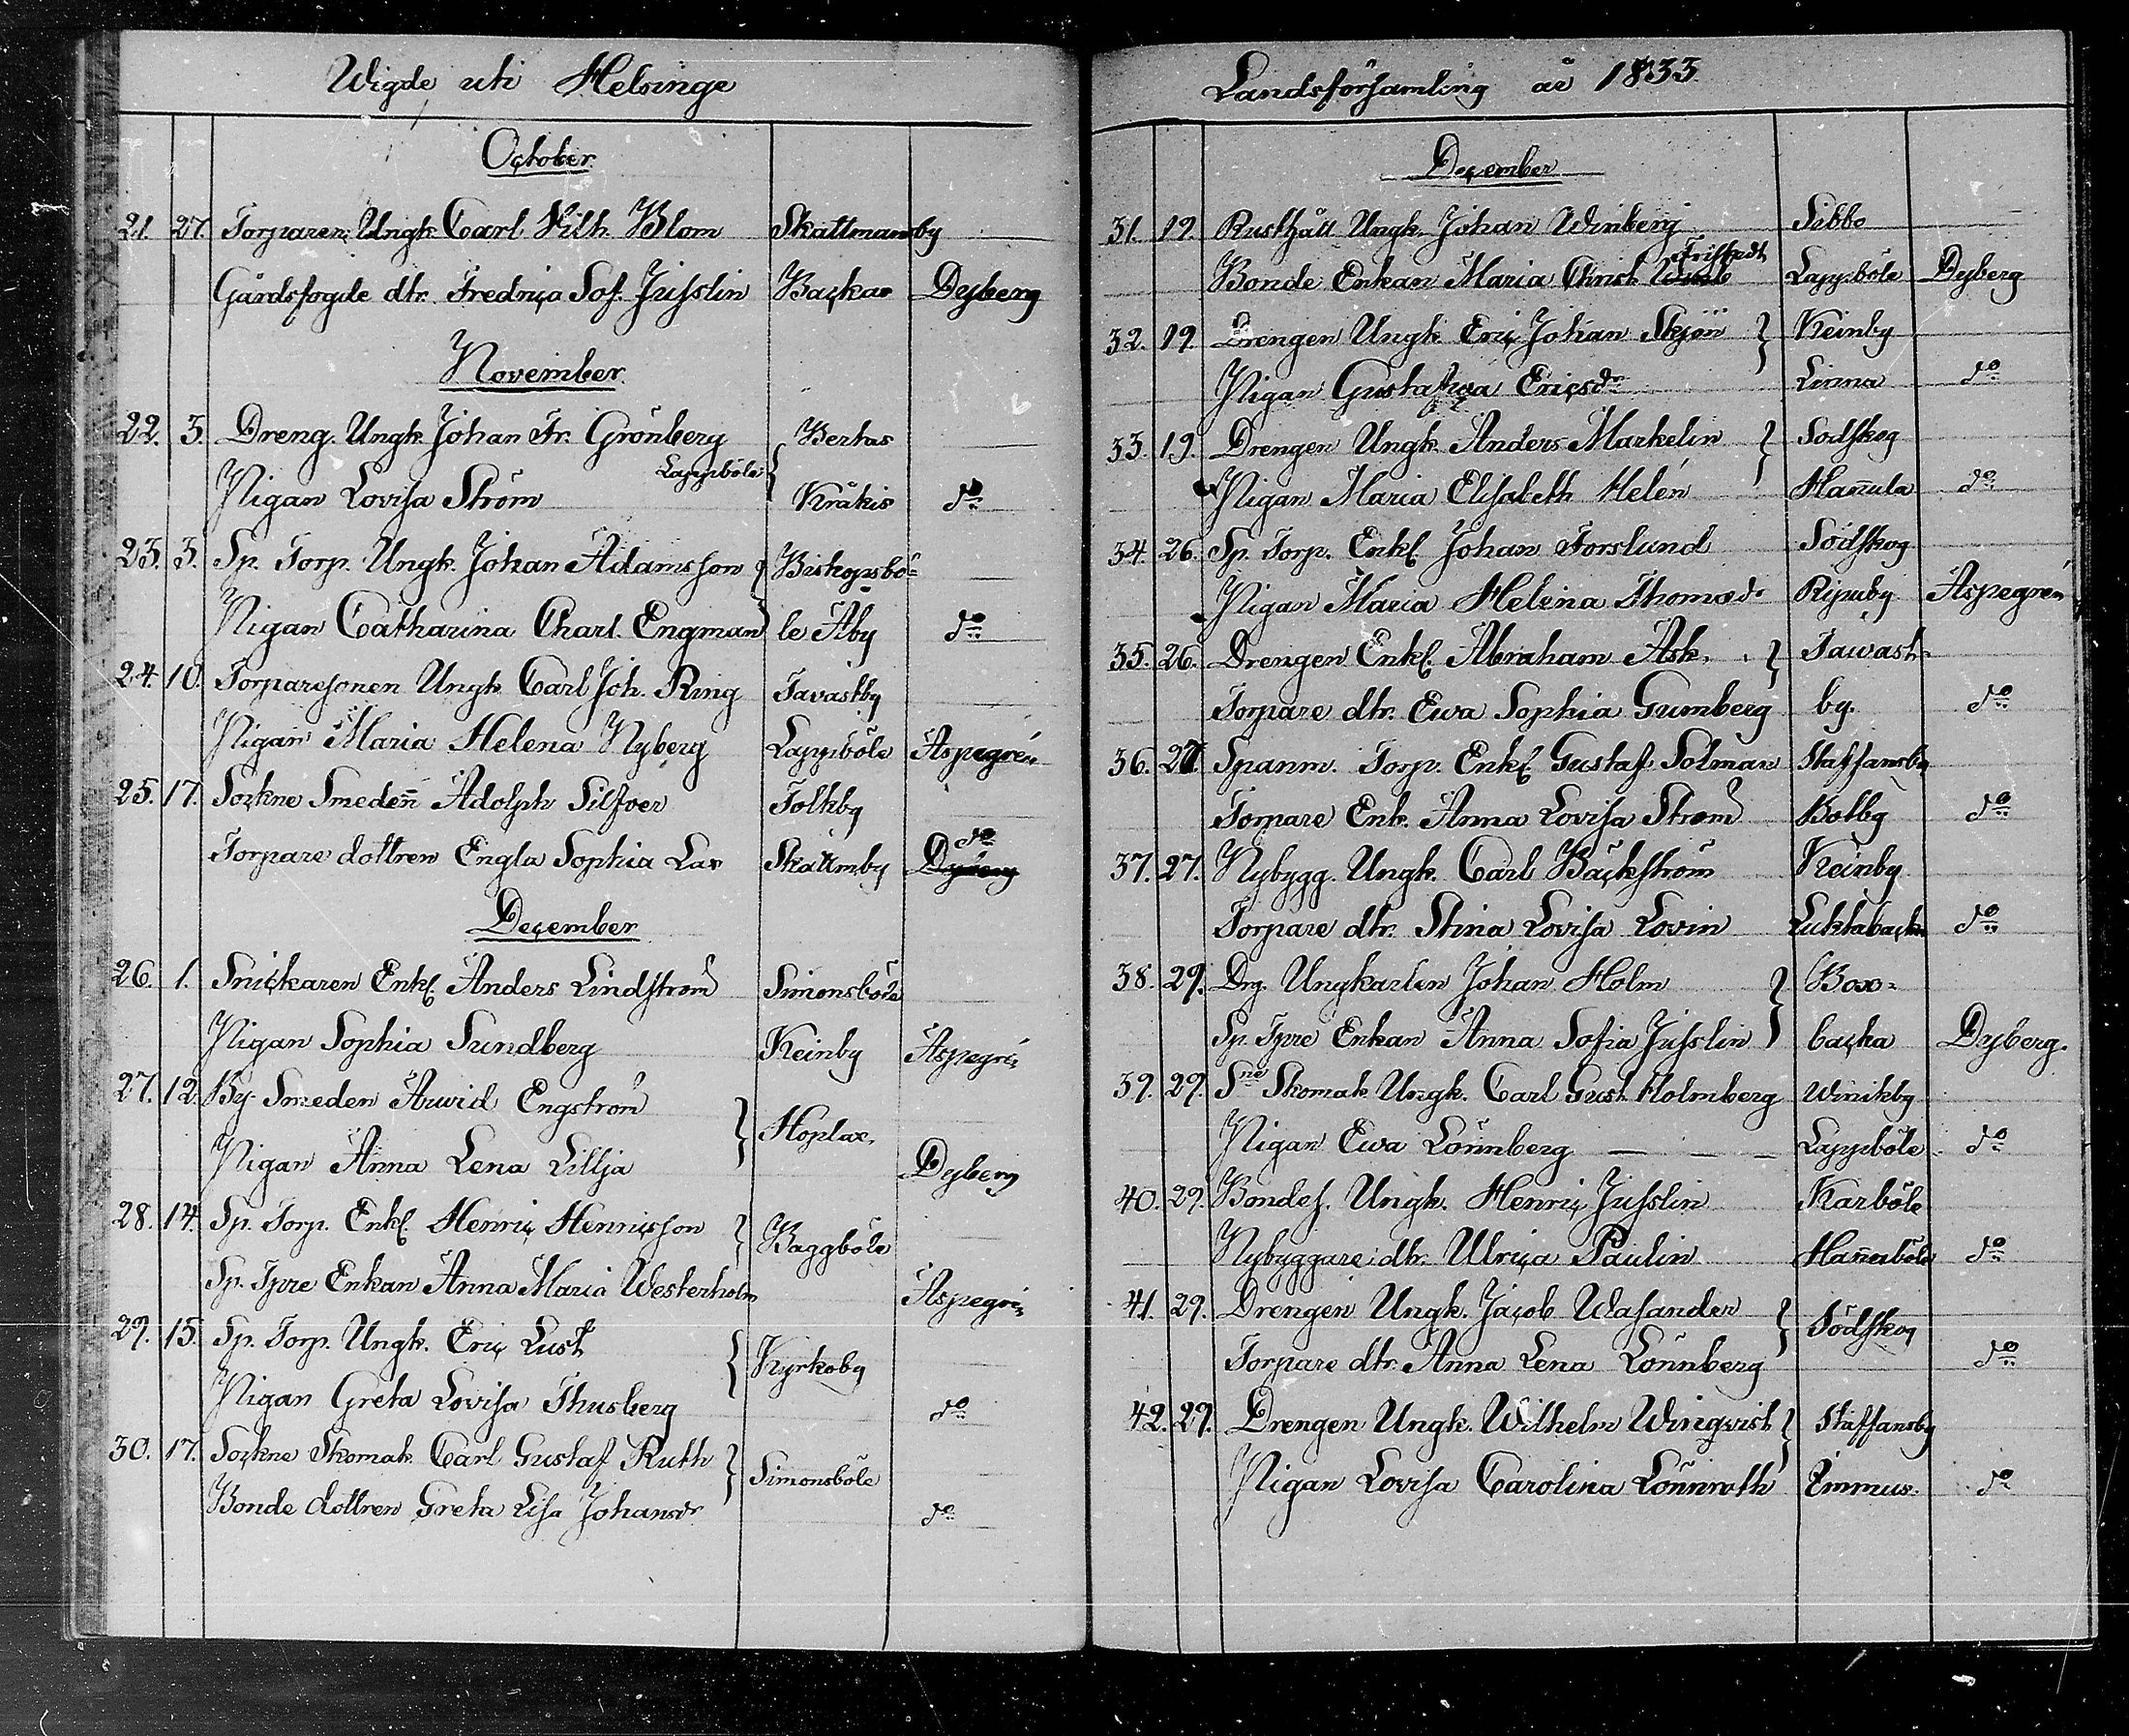 Wigde uti Helsinge
October
21. 27. Torparen Ungk. Carl Vilh. Blom Skattmanby
Gårdsfogde dtr. Fredrica Sof. Jusslin Backas Dyberg
November
22. 3. Dreng. Ungk. Johan Fr. Grönberg Bertas
Lappböle
Pigan Lovisa Ström Kråkis do
23. 3. Sp. Torp. Ungk. Johan Adamsson Biskopsbö=
Pigan Catharina Charl. Engman le Åby do
24. 10. Torparesonen Ungk. Carl Joh. Ring Tavastby
Pigan Maria Helena Nyberg Lappböle Aspegrén
25. 17. Sockne Smeden Adolph Silfver Tolkby
do
Torpare dottren Engla Sophia Lax Skattmby Dyberg
December
26. 1. Snickaren Enkl. Anders Lindström Simonsböle
Pigan Sophia Sundberg Keinby Aspegrén
27. 12. By Smeden Arwid Engström
Hoplax.
Pigan Anna Lena Lillja Dyberg
28. 14. Sp. Torp. Enkl. Henric Henricsson
Baggböle
Sp. Tpre Enkan Anna Maria Westerholm Aspegrén
29. 15. Sp. Torp. Ungk. Eric Lust
Kyrkoby
Pigan Greta Lovisa Thusberg do
30. 17. Sockne Skomak. Carl Gustaf Ruth
Simonsböle
Bonde dottren Greta Lisa Johansdr do
Landsförsamling år 1833
December
31. 19. Rusthåll Ungk. Johan Winberg Sibbo
Fristedt
Bonde Enkan Maria Christ. Lappböle Dyberg
32. 19. Drengen Ungk. Eric Johan Skjön Keinby
Pigan Gustafva Ericsdr Linna do
33. 19. Drengen Ungk. Anders Markelin Sodskog
Pigan Maria Elisabeth Helén Hannula do
34. 26. Sp. Torp. Enkl. Johan Forslund Södskog
Pigan Maria Helena Thomasdr Ripuby Aspegrén
35. 26. Drengen Enkl. Abraham Ask. Tawast=
Torpare dtr. Ewa Sophia Gumberg by. do
36. 27. Spanm. Torp. Enkl. Gustaf Solman Staffansby
Torpare Enk. Anna Lovisa Ström Botby do
37. 27. Nybygg. Ungk. Carl Bäckström Keinby
Torpare dtr. Stina Lovisa Lovin Luktabacka do
38. 29. Drg. Ungkarlen Johan Holm Boxo=
Sp. Tpre Enkan Anna Sofia Jusslin backa Dyberg.
39. 29. Sne Skomak. Ungk. Carl Gust. Holmberg Winikby
Pigan Ewa Lönnberg Lappböle do
40. 29. Bondes. Ungk. Henric Jusslin Karböle
Nybyggare dtr. Ulrica Paulin Hannusböle do
41. 29. Drengen Ungk. Jacob Wasander
Södskog
Torpare dtr. Anna Lena Lönnberg do
42. 29. Drengen Ungk. Wilhelm Winqvist Staffansby
Pigan Lovisa Carolina Lönnroth Immus. do